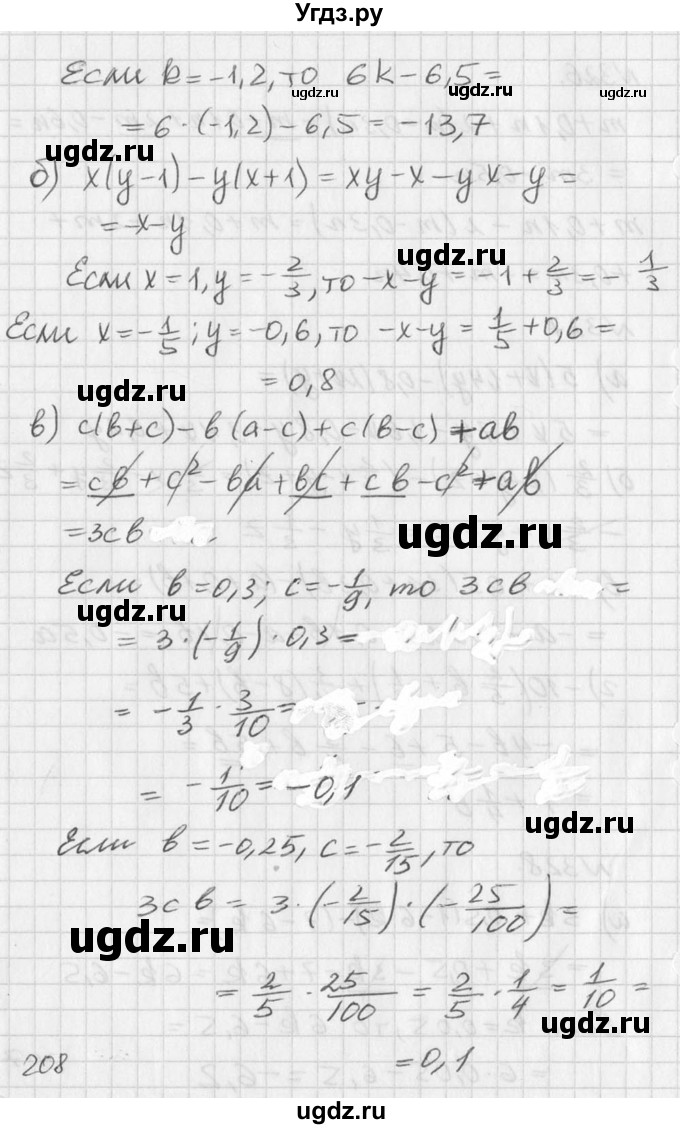 Угдз.ру
Если k=-1,2, то 6k-6,5=
=6·(-1,2)-6,5=-13,7
б) x(y-1)-y(x+1)=xy-x-yx-y=
=-x-y
Если x=1, y=-2/3, то -x-y=-1+2/3=-1/3
Если x=-1/5; y=-0,6, то -x-y=1/5+0,6=
=0,8
в) c(b+c)-b(a-c)+c(b-c)+ab
=cb+c²-ba+bc+cb-c²+ab
=3cb
Если b=0,3; c=-1/9, то 3cb =
=3·(-1/9)·0,3=
=-1/3·3/10=
=-1/10=-0,1
Если b=-0,25, c=-2/15, то
3cb=3·(-2/15)·(-25/100)=
=2/5·25/100=2/5·1/4=1/10=
=0,1
208
ugdz.ru
ugdz.ru
ugdz.ru
ugdz.ru
ugdz.ru
ugdz.ru
ugdz.ru
ugdz.ru
ugdz.ru
ugdz.ru
ugdz.ru
ugdz.ru
ugdz.ru
ugdz.ru